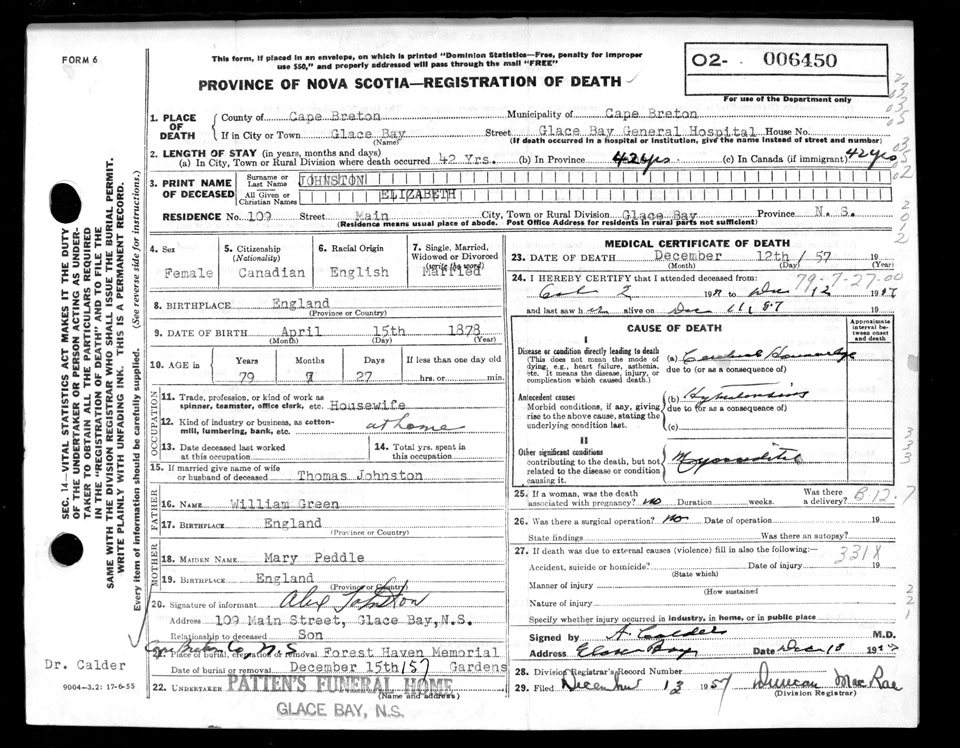 FORM 6
This form, if placed in an envelope, on which is printed "Dominion Statistics—Free, penalty for improper
use $50," and properly addressed will pass through the mail "FREE"
PROVINCE OF NOVA SCOTIA—REGISTRATION OF DEATH
02- 006450
For use of the Department only
1. PLACE OF DEATH County of Cape Breton Municipality of Cape Breton
If in City or Town Glace Bay Street Glace Bay General Hospital House No.
(Name) (If death occurred in a hospital or institution, give the name instead of street and number)
2. LENGTH OF STAY (in years, months and days)
(a) In City, Town or Rural Division where death occurred 42 Yrs. (b) In Province 42 yrs (c) In Canada (if immigrant) 42 yrs
3. PRINT NAME OF DECEASED Surname or Last Name JOHNSTON
All Given or Christian Names ELIZABETH
RESIDENCE No. 109 Street Main City, Town or Rural Division Glace Bay Province N. S.
(Residence means usual place of abode. Post Office Address for residents in rural parts not sufficient)
4. Sex Female
5. Citizenship (Nationality) Canadian
6. Racial Origin English
7. Single, Married, Widowed or Divorced (write the word) Married
8. BIRTHPLACE England
(Province or Country)
9. DATE OF BIRTH April 15th 1878
(Month) (Day) (Year)
10. AGE in Years Months Days If less than one day old
79 7 27 hrs. or min.
OCCUPATION
11. Trade, profession, or kind of work as
spinner, teamster, office clerk, etc. Housewife
12. Kind of industry or business, as cotton-
mill, lumbering, bank, etc. at home
13. Date deceased last worked
at this occupation
14. Total yrs. spent in
this occupation
15. If married give name of wife
or husband of deceased Thomas Johnston
FATHER
16. NAME William Green
17. BIRTHPLACE England
(Province or Country)
MOTHER
18. MAIDEN NAME Mary Peddle
19. BIRTHPLACE England
(Province or Country)
20. Signature of informant Alex Johnston
Address 109 Main Street, Glace Bay, N.S.
Relationship to deceased Son
Cape Breton Co, N.S
21. Place of burial, cremation or removal Forest Haven Memorial
Date of burial or removal December 15th/57 Gardens
22. UNDERTAKER PATTEN'S FUNERAL HOME
(Name and address)
GLACE BAY, N.S.
MEDICAL CERTIFICATE OF DEATH
23. DATE OF DEATH December 12th / 57 19
(Month) (Day) (Year)
24. I HEREBY CERTIFY that I attended deceased from: 79-7-27-00
2 19 to Dec 12 1957
and last saw h alive on Dec 11 57 19
CAUSE OF DEATH
Approximate interval between onset and death
I
Disease or condition directly leading to death
(This does not mean the mode of
dying, e.g., heart failure, asthenia,
etc. It means the disease, injury, or
complication which caused death.)
(a) Cerebral Hemorrhage
due to (or as a consequence of)
Antecedent causes
Morbid conditions, if any, giving
rise to the above cause, stating the
underlying condition last.
(b) Hypertension
due to (or as a consequence of)
(c)
II
Other significant conditions
contributing to the death, but not
related to the disease or condition
causing it.
Myocarditis
25. If a woman, was the death
associated with pregnancy? no Duration weeks. Was there a delivery? B-12.7
26. Was there a surgical operation? No Date of operation 19
State findings Was there an autopsy?
27. If death was due to external causes (violence) fill in also the following:
331X
Accident, suicide or homicide? Date of injury 19
(State which)
Manner of injury
(How sustained
Nature of injury
Specify whether injury occurred in industry, in home, or in public place
Signed by A. Calder M.D.
Address Glace Bay Date Dec 13 1957
28. Division Registrar's Record Number
29. Filed December 13 1957 Duncan MacRae
(Division Registrar)
SEC. 14—VITAL STATISTICS ACT MAKES IT THE DUTY
OF THE UNDERTAKER OR PERSON ACTING AS UNDER-
TAKER TO OBTAIN ALL THE PARTICULARS REQUIRED
IN THE "REGISTRATION OF DEATH" AND TO FILE THE
SAME WITH THE DIVISION REGISTRAR WHO SHALL ISSUE THE BURIAL PERMIT.
WRITE PLAINLY WITH UNFADING INK. THIS IS A PERMANENT RECORD.
Every item of information should be carefully supplied. (See reverse side for instructions.)
Dr. Calder
9004-3.2: 17-6-55